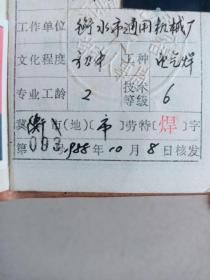 工作单位 衡水市通用机械厂
文化程度 初中 工种 电气焊
专业工龄 2 技术等级 6
冀衡市(地)〔市〕劳特〔焊〕字
第003号1988年10月8日核发